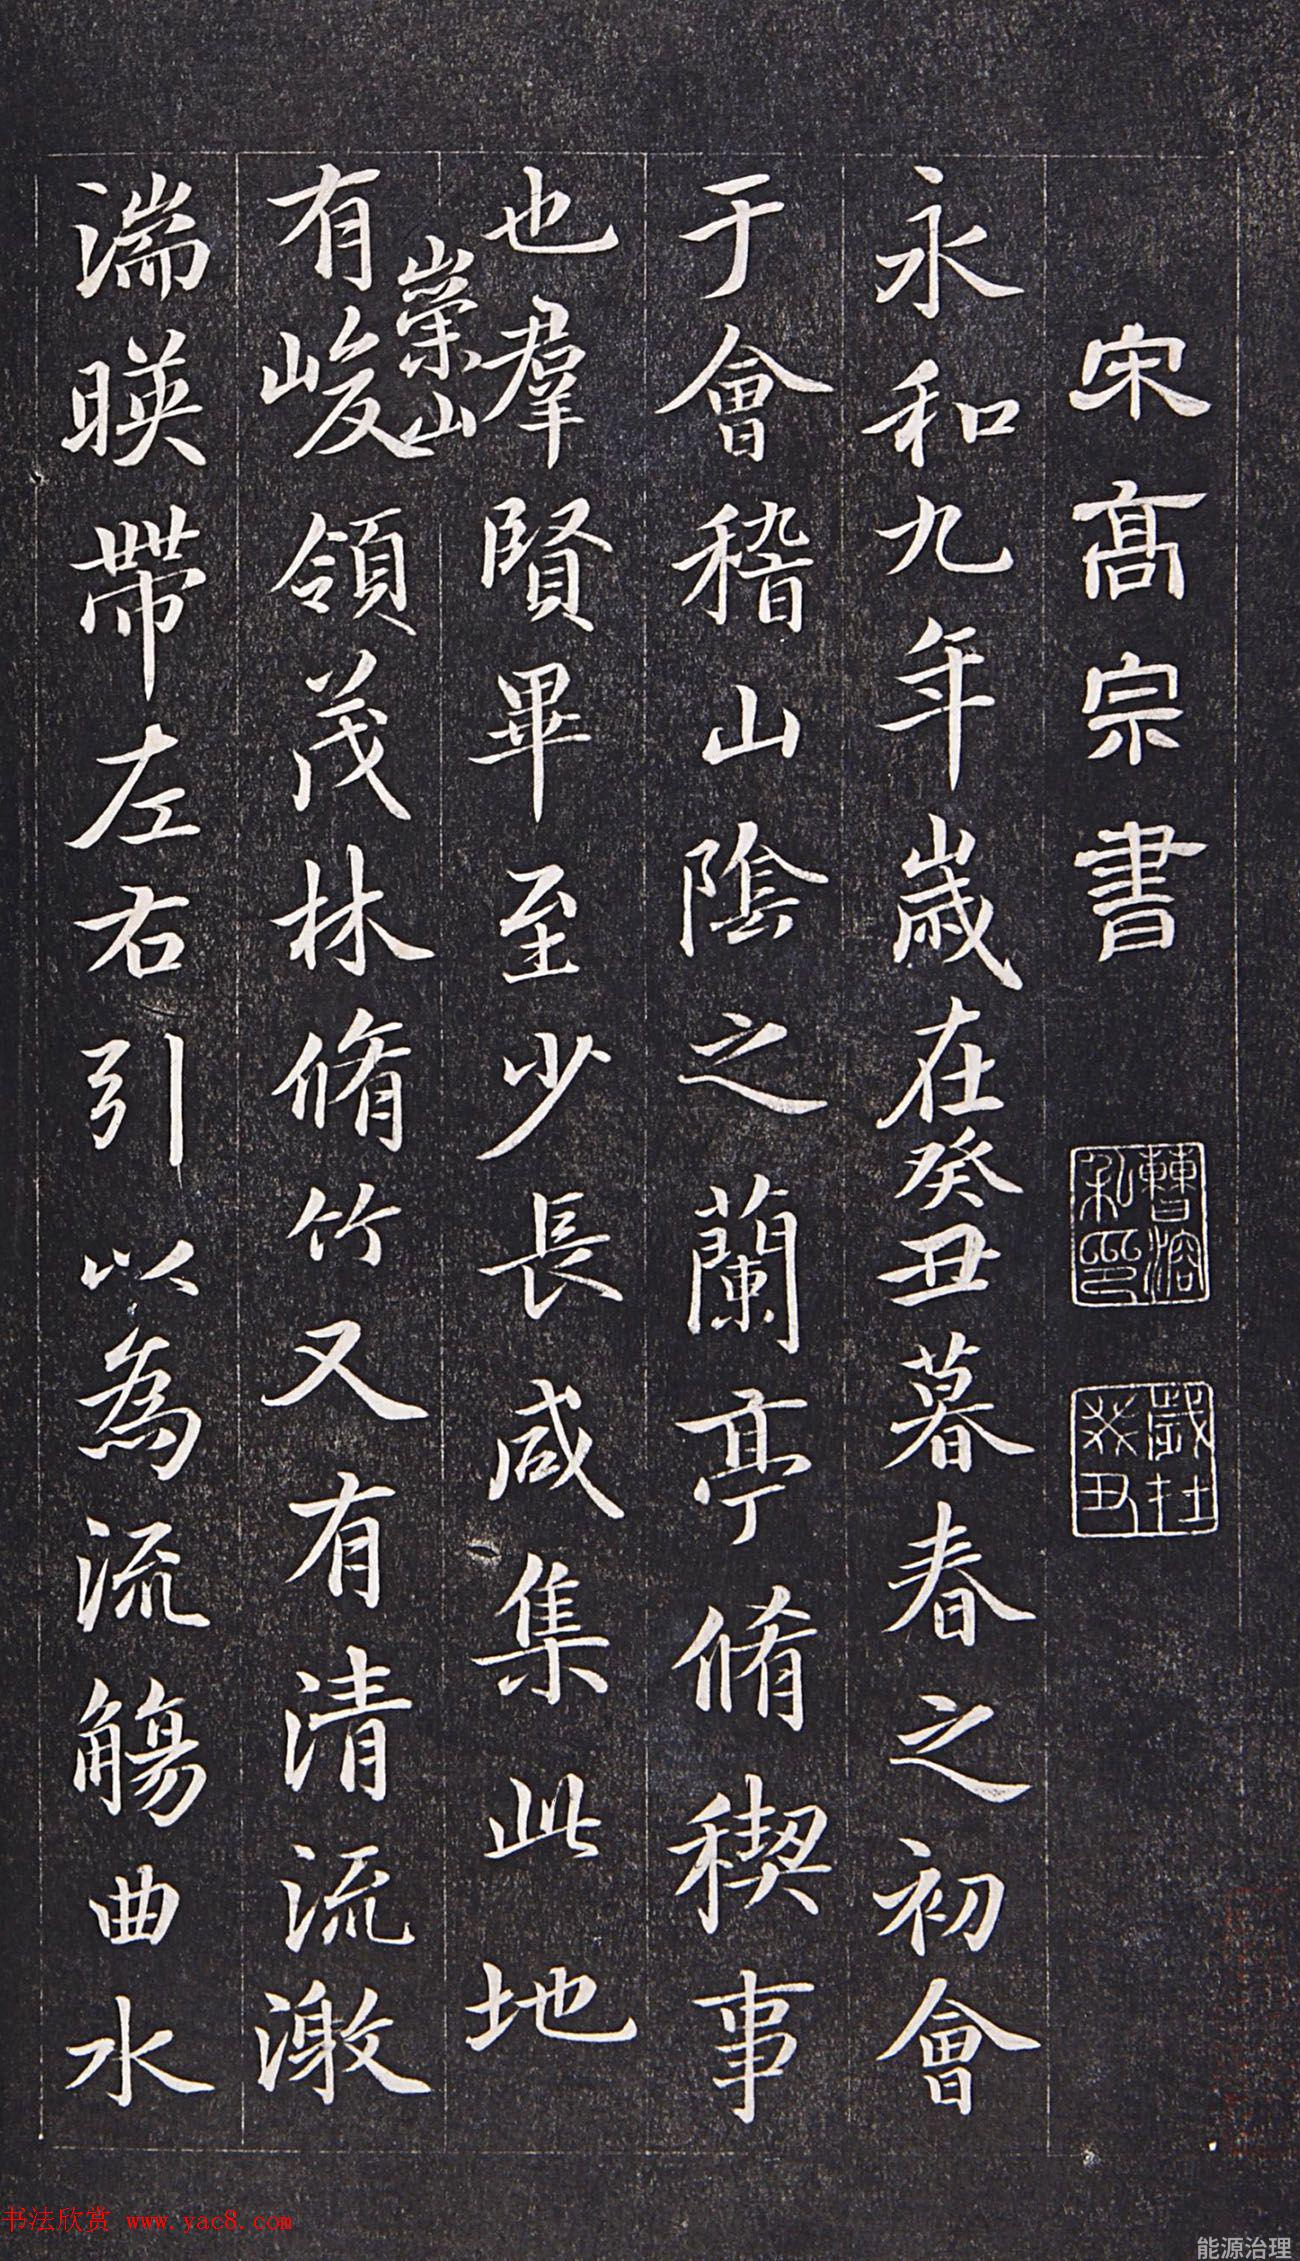 宋髙宗書
曹溶私印
歲在癸丑
永和九年歲在癸丑暮春之初會
于會稽山陰之蘭亭脩稧事
也羣賢畢至少長咸集此地
有崇山峻領茂林脩竹又有清流激
湍暎帶左右引以為流觴曲水
书法欣赏 www.yac8.com
能源治理